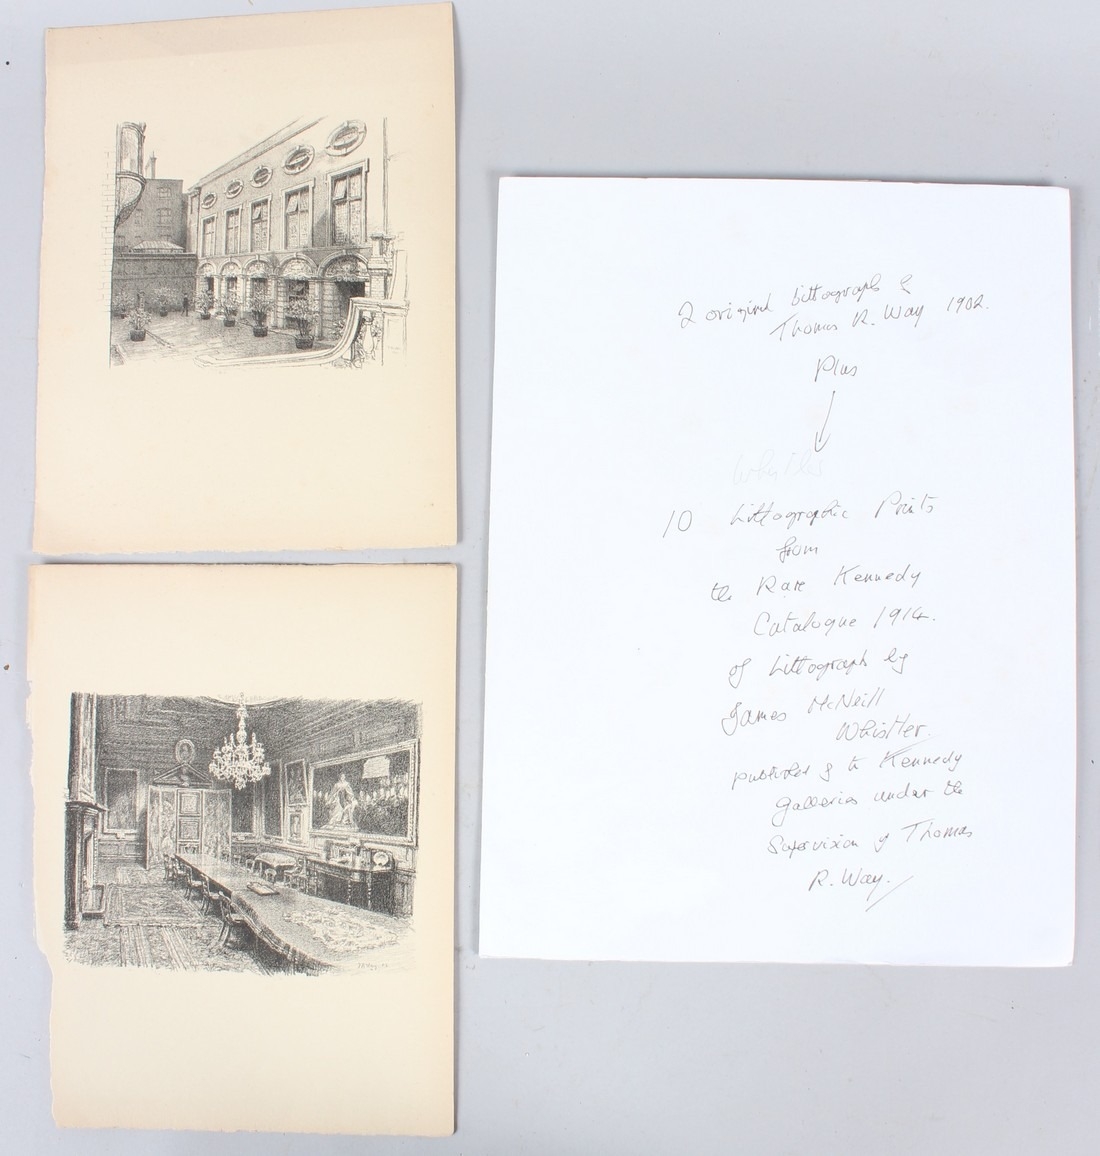 2 original Lithographs &
Thomas R. Way 1902.
Plus
Whistler
10 Lithographic Prints
from
the Rare Kennedy
Catalogue 1914.
of Lithographs by
James McNeill
Whistler.
published by the Kennedy
Galleries under the
Supervision of Thomas
R. Way.